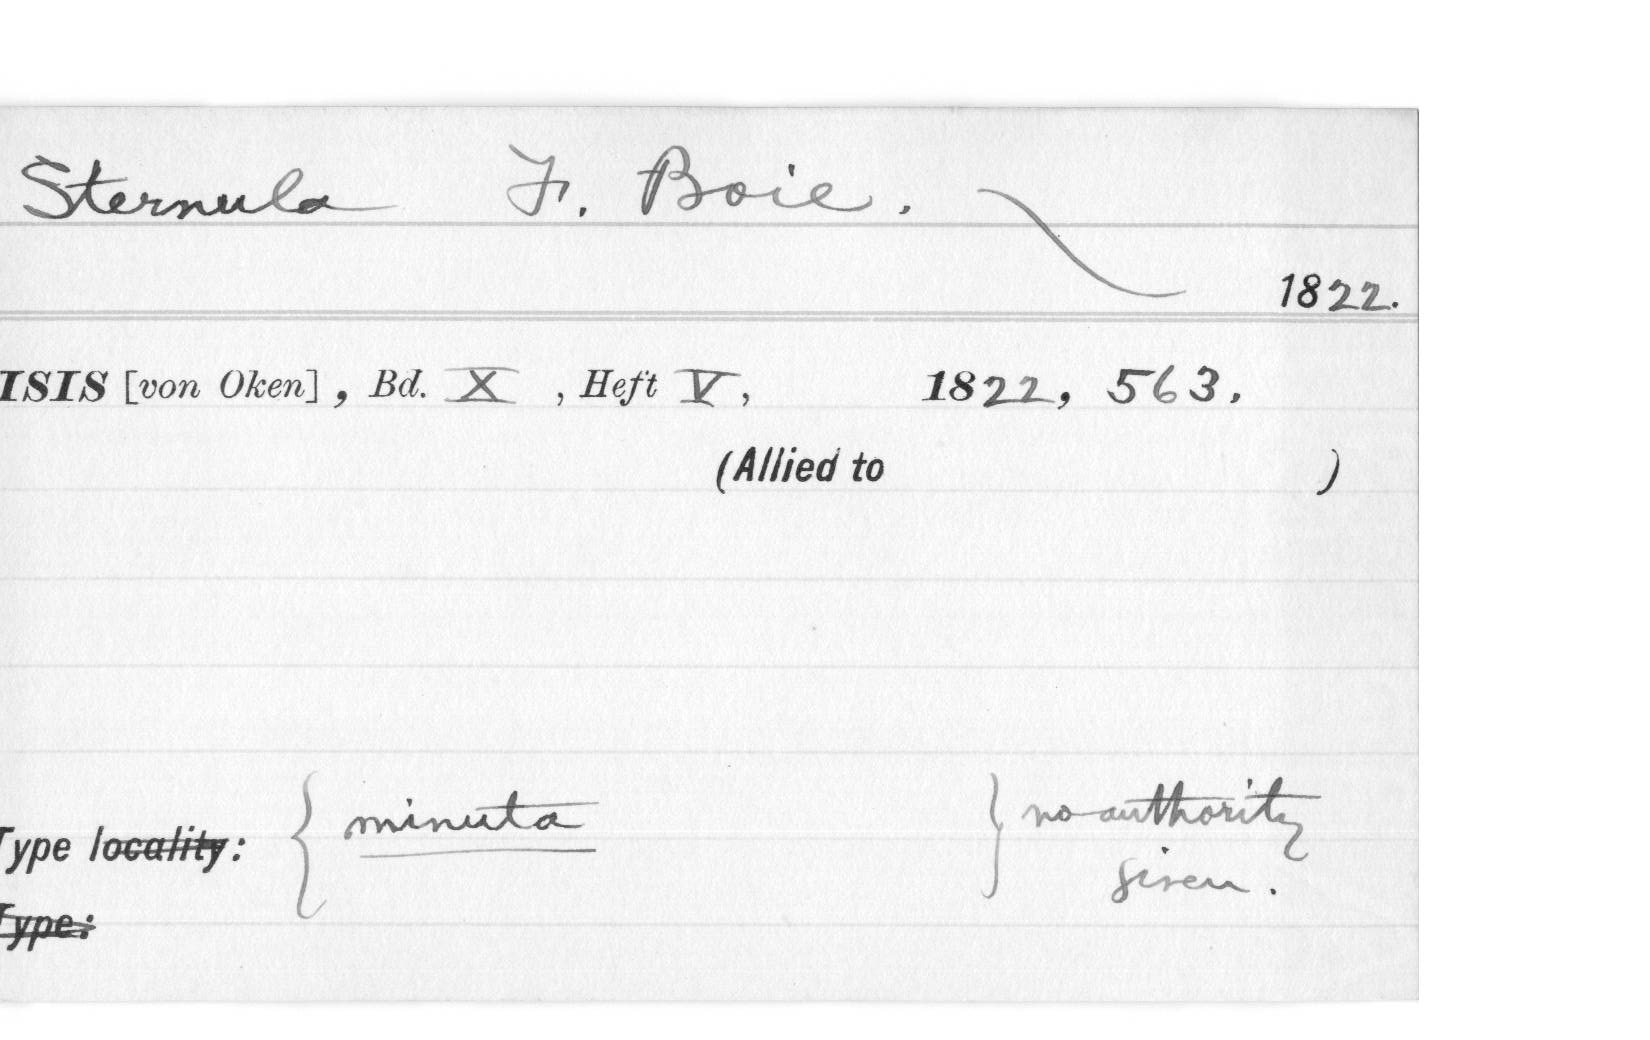 Sternula F. Boie.
1822.
ISIS [von Oken], Bd. X, Heft V, 1822, 563.
(Allied to )
Type locality: { minuta } no authority
given.
Type: